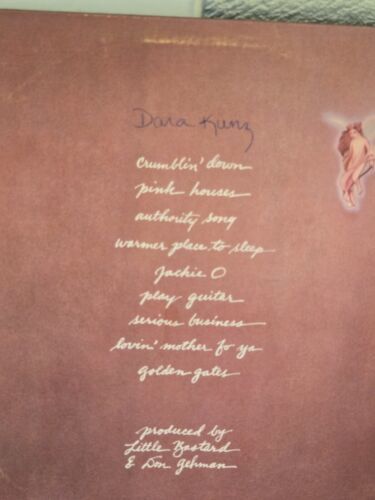 Dara Kunz
crumblin' down
pink houses
authority song
warmer place to sleep
Jackie O
play guitar
serious business
lovin' mother fo ya
golden gates
produced by
Little Bastard
& Don Gehman